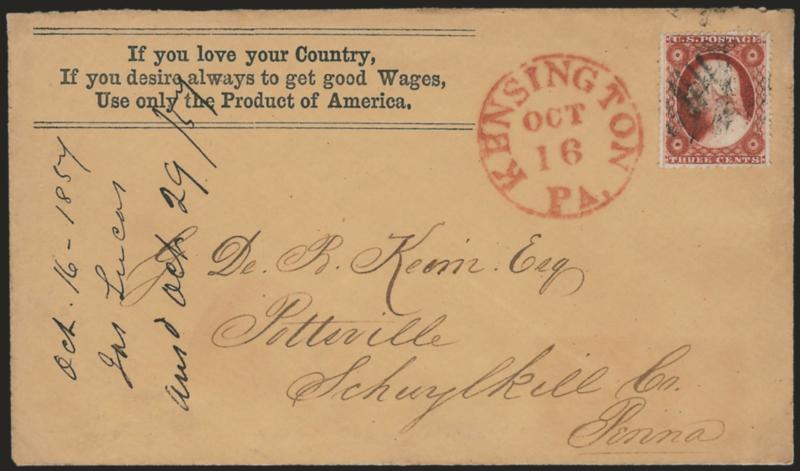 If you love your Country,
If you desire always to get good Wages,
Use only the Product of America.
KENSINGTON
OCT
16
PA.
U.S. POSTAGE
THREE CENTS
J. De. B. Keim. Esq
Pottsville
Schuylkill Co.
Penna
Oct. 16 - 1857
Jas Lucas
ansd Oct 29/57